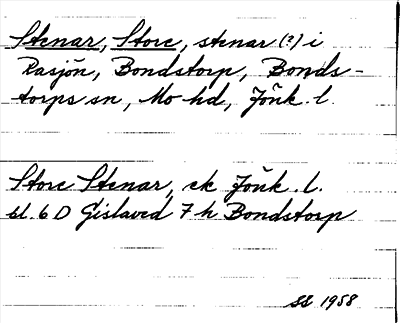 Stenar, Store, stenar (?) i
Rasjön, Bondstorp, Bonds-
torps sn, Mo hd, Jönk. l.
Store Stenar, ek Jönk. l.
bl. 6 D Gislaved 7 h Bondstorp
SE 1958